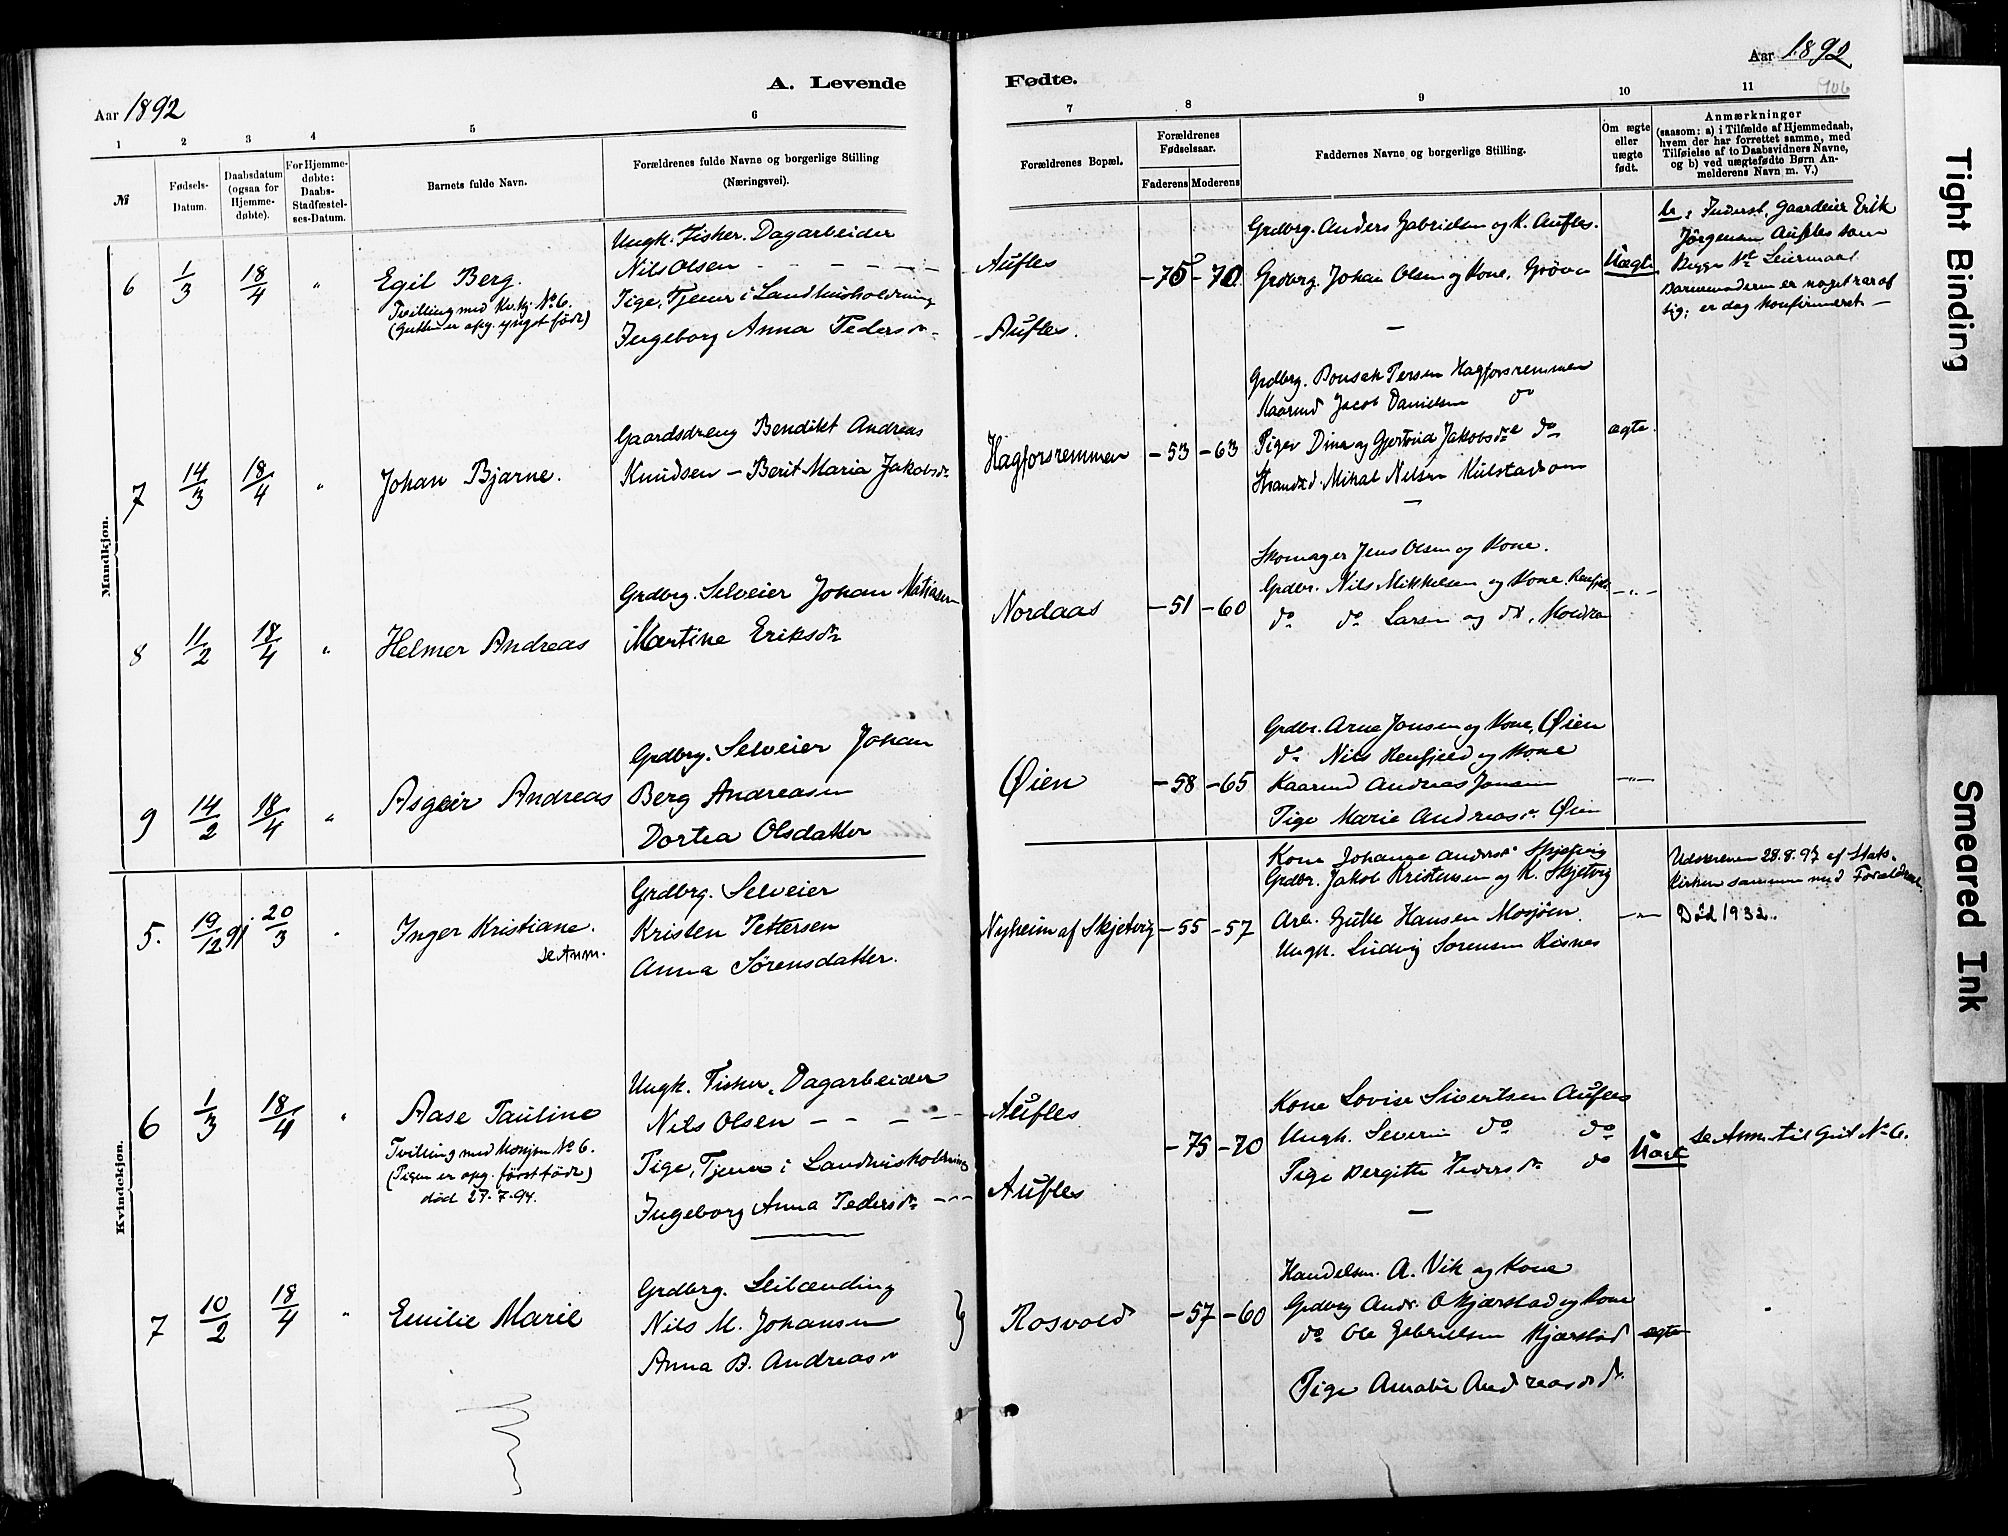 Aar 1892
A. Levende
Fødte.
Aar 1892
106
1
2
3
4
5
6
7
8
9
10
11
№
Fødsels-
Datum.
Daabsdatum
(ogsaa for
Hjemme-
døbte).
For Hjemme-
døbte:
Daabs-
Stadfæstel-
ses-Datum.
Barnets fulde Navn.
Forældrenes fulde Navne og borgerlige Stilling
(Næringsvei).
Forældrenes Bopæl.
Forældrenes
Fødselsaar.
Faderens
Moderens
Faddernes Navne og borgerlige Stilling.
Om ægte
eller
uægte
født.
Anmærkninger
(saasom: a) i Tilfælde af Hjemmedaab,
hvem der har forrettet samme, med
Tilføielse af to Daabsvidners Navne,
og b) ved uægtefødte Børn An-
melderens Navn m. V.)
Mandkjøn.
6
1/3
18/4
"
Egil Berg.
Tvilling med Kv.kj. No 6.
(Gutten er opg. yngst født)
Ungk. Fisker. Dagarbeider
Nils Olsen - - - - - -
Pige, Tjener i Landhusholdning
Ingeborg Anna Pedersdr
Aufles
- Aufles.
-75 -70
Grdbrg. Anders Gabrielsen og K. Aufles.
Grdbrg. Johan Olsen og Kone, Grøva
—
Uægte
b: Inderst, Gaardeier Erik
Jørgensen Aufles som
Begge 1st Leiermaal
Barnemoderen er noget rar af
sig; er dog konfirmeret —
7
14/3
18/4
"
Johan Bjarne.
Gaardsdreng Bendikt Andreas
Knudsen — Berit Maria Jakobsdr
Hagforsremmen
-53 -63
Grdbrg. Bonsak Persen Hagforsremmen
Kaarmd Jacob Danielsen do
Piger Dina og Gjertrud Jakobsdre do
Strands. Mikal Nilsen Kulstad
—
ægte.
8
11/2
18/4
"
Helmer Andreas
Grdbrg. Selveier Johan Matiasen
Martine Eriksdr
Nordaas
-51 -60
Skomager Jens Olsen og Kone.
Grdbr. Nils Mikkelsen og Kone.
do do Larsen og do,
— " —
9
14/2
18/4
"
Asgeir Andreas
Grdbrg. Selveier Johan
Berg Andreasen
Dortea Olsdatter
Øien
-58 -65
Grdbr. Arne Jonsen og Kone, Øien
do Nils Renfjeld og Kone
Kaarmd Andreas Jonsen
Pige Marie Andreasdr Øien
— " —
Kvindekjøn.
5.
19/12 91
20/3
"
Inger Kristiane.
se Anm.
Grdbrg. Selveier
Kristen Pettersen
Anna Sørensdatter.
Nyheim af Skjetvig
-55 -57
Kone Johanna Andersd. Skjetvig
Grdbr. Jakob Kristensen og K. Skjetvig
Arb. Gutte Hansen Mosjøen.
Ungk. Ludvig Sørensen Risnes
— " —
Udskreven 28.8.97 af Stats-
kirken sammen med Forældrene.
Død 1932.
6
1/3
18/4
"
Aase Pauline
Tvilling med Mandkjøn No 6.
(Pigen er opg. først født)
død 27.7.94.
Ungk. Fisker, Dagarbeider
Nils Olsen - - - -
Pige, Tjener i Landhusholdning
Ingeborg Anna Pedersdr - - -
Aufles
Aufles
-75 -70
Kone Lovise Sivertsen Aufles
Ungk. Severin do do
Pige Bergitte Pedersdr do
—
Uægte
se Anm. til Gut No 6.
7
10/2
18/4
"
Emilie Marie
Grdbrg. Leilænding
Nils M. Johansen
Anna B. Andreasdr
Rosvold
-57 -60
Handelsm. A. Vik og Kone
Grdbrg Andr. O Kjærstad og Kone
do Ole Gabrielsen Kjærstad
Pige Amalie Andreasdr.
ægte
Tight Binding
Smeared Ink